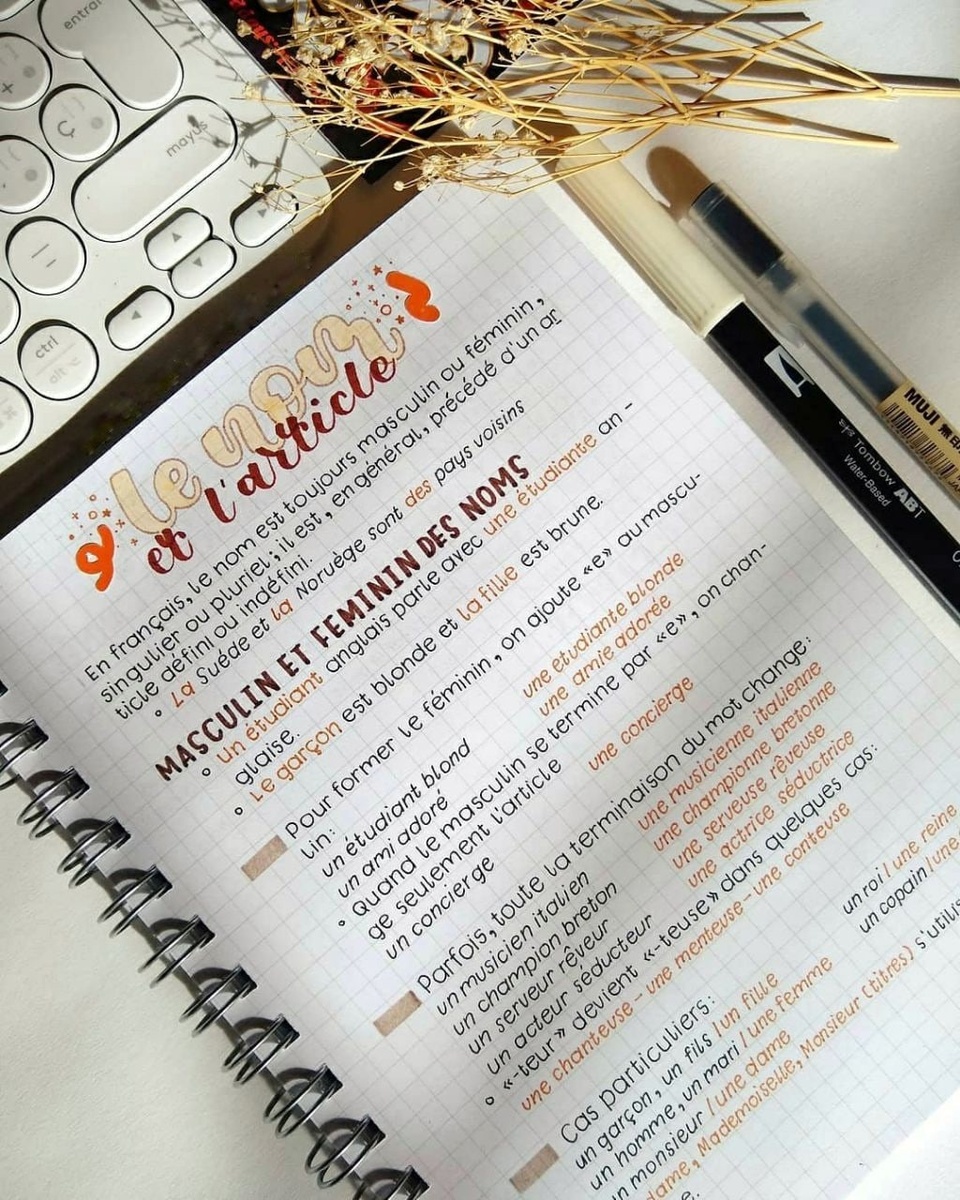 entrar
+
Ç
mayus
ctrl
alt
le nom
et l'article
En français, le nom est toujours masculin ou féminin,
singulier ou pluriel; il est, en général, précédé d'un ar
ticle défini ou indéfini.
La Suéde et la Noruége sont des pays voisins
MASCULIN ET FEMININ DES NOMS
Un étudiant anglais parle avec une étudiante an-
glaise.
Le garçon est blonde et la fille est brune.
Pour former le féminin, on ajoute «e» au mascu-
lin:
un étudiant blond une etudiante blonde
un ami adoré une amie adorée
Quand le masculin se termine par «e», on chan-
ge seulement l'article
un concierge une concierge
Parfois, toute la terminaison du mot change:
un musicien italien une musicienne italienne
un champion breton une championne bretonne
un serveur rêveur une serveuse rêveuse
un acteur séducteur une actrice séductrice
«-teur» devient «-teuse» dans quelques cas:
une chanteuse - une menteuse - une conteuse
Cas particuliers:
un garçon, un fils / un fille un roi / une reine
un homme, un mari / une femme un copain / une
un monsieur / une dame
dame, Mademoiselle, Monsieur (titres) s'utilis
MUJI
Tombow ABT
Water-Based